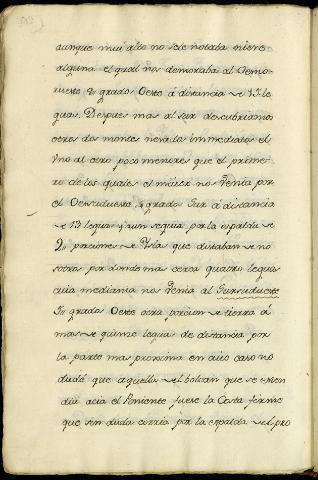 aunque mui alto no sele notaba nieve
alguna el qual nos demoraba al
grados Oeste á distancia de 13 le
guas. Despues mas al Sur descubriamos
otros dos montes nevados immediatos el
vno al otro poco menores que el prime
ro de los quales el maior nos venia por
el grados Sur á distancia
de 13 leguas y aun seguia por la espalda de
porciones de Ysla que distaban de no
sotros por donde mas cerca quatro leguas
cuia mediania nos venia al Sursudueste
grados Oeste otra porcion de tierra á
mas de quinze leguas de distancia por
la parte mas proxima en cuio caso no
dudé que aquella del bolcan que se esten
dia acia el Poniente fuese la Costa firme
que sin duda corria por la espalda del pro